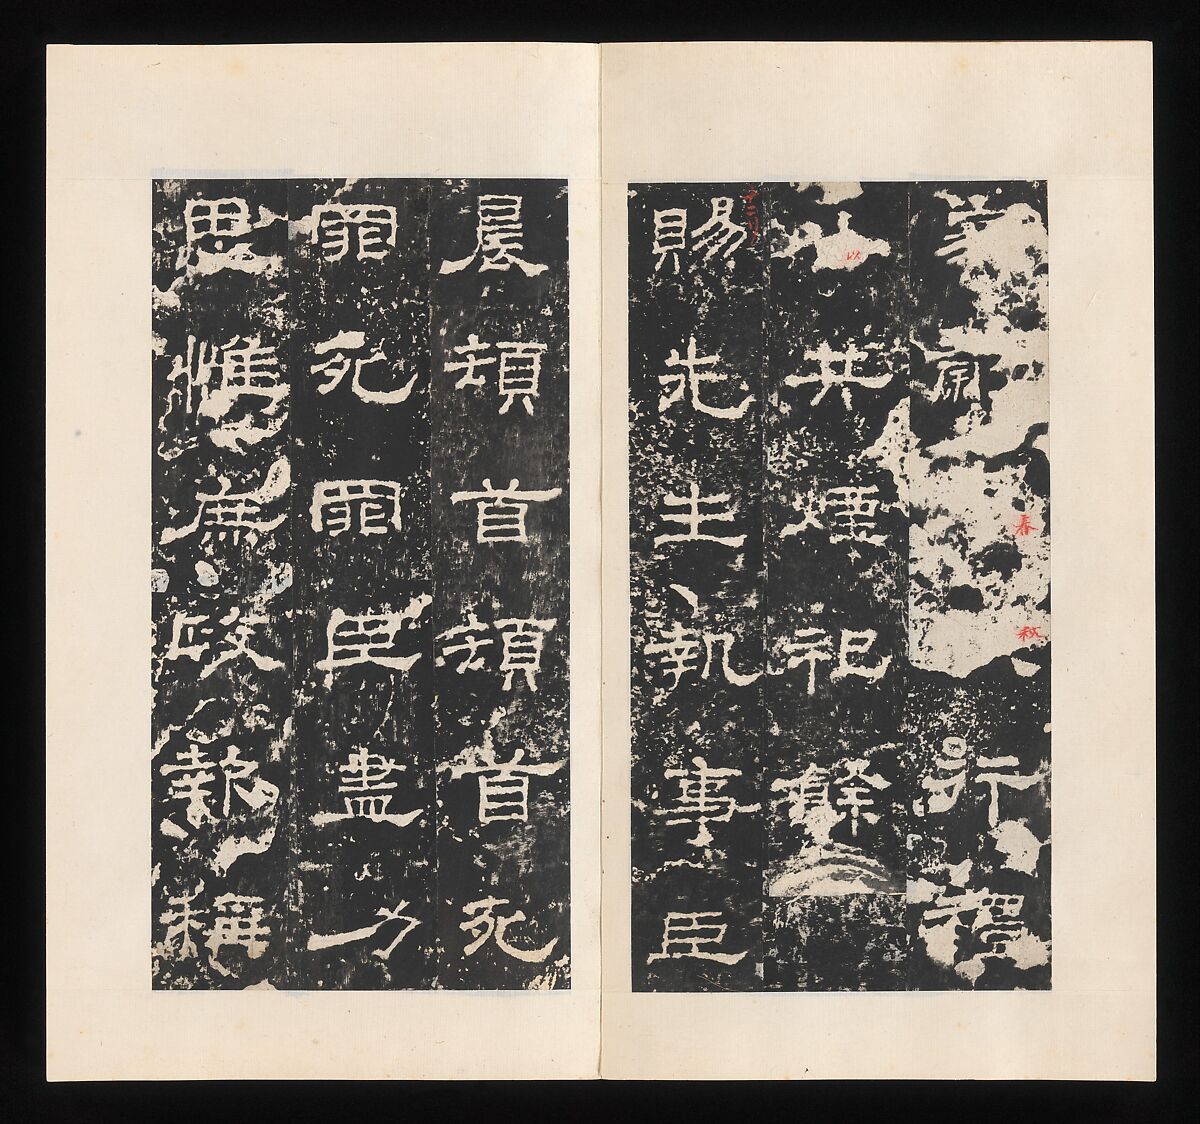 家穀春秋行禮
以共煙祀餘
賜先生執事臣
晨頓首頓首死
罪死罪臣盡力
思惟庶政報稱